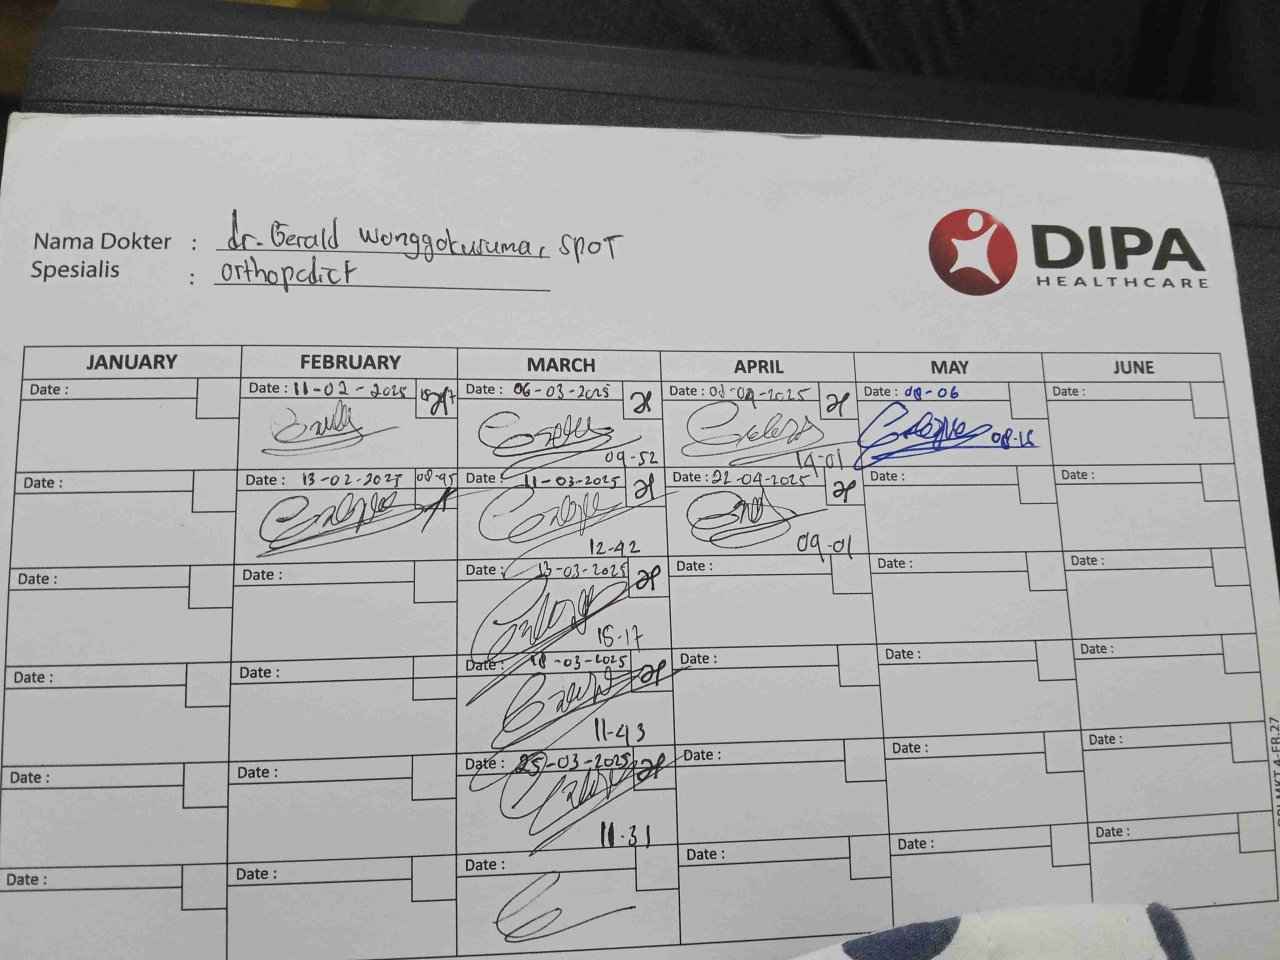 Nama Dokter : dr. Gerald Wonggokusuma, SPOT
Spesialis : Orthopedict
DIPA
HEALTHCARE
JANUARY FEBRUARY MARCH APRIL MAY JUNE
Date : Date : 11-02-2025 Date : 06-03-2025 Date : 08-04-2025 Date : 08-06 Date :
09-52 14-01 08-15
Date : Date : 13-02-2025 08-45 Date : 11-03-2025 Date : 22-04-2025 Date : Date :
12-42 09-01
Date : Date : Date : 13-03-2025 Date : Date : Date :
15-17
Date : Date : Date : 18-03-2025 Date : Date : Date :
11-43
Date : Date : Date : 25-03-2025 Date : Date : Date :
11-31
Date : Date : Date : Date : Date : Date :